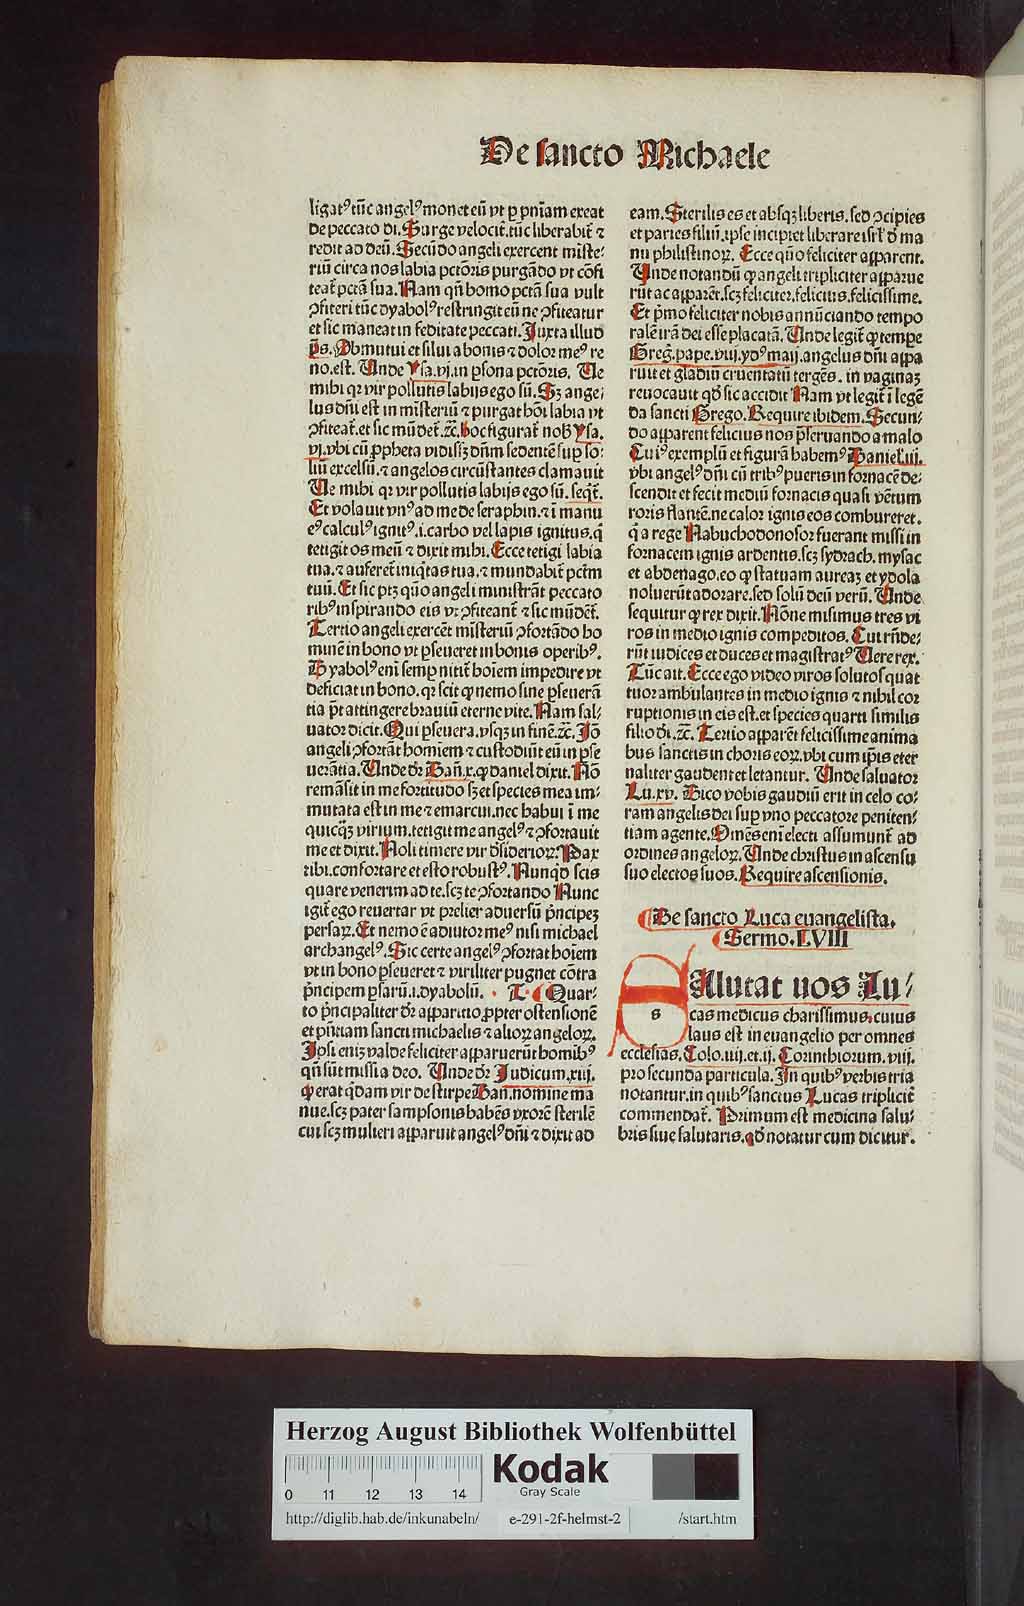 De sancto Michaele
ligatꝰ tūc angelꝰ monet eū vt ꝑ pn̄iam exeat
de peccato di. Surge velocit̄. tūc liberabit̄ ⁊
redit ad deū. Secūdo angeli exercent miste⸗
riū circa nos labia pctōris purgādo vt cōfi
teat̄ pctā sua. Nam qn̄ homo pctā sua vult
ꝯfiteri tūc dyabolꝰ restringit eū ne ꝯfiteatur
et sic maneat in feditate peccati. Juxta illud
p̄s. Obmutui et silui a bonis ⁊ dolor meꝰ re
no. est. Unde Ysa. vj. in ꝑsona pctōris. Ve
mihi qꝛ vir pollutis labijs ego sū. Sꝫ ange⸗
lus dn̄i est in misteriū ⁊ purgat hoī labia vt
ꝯfiteat̄. et sic mūdet̄. ⁊c̄. hoc figurat̄ nob̄ Ysa.
vj. vbi cū ꝓpheta vidissꝫ dn̄m sedentē suꝑ so⸗
liū excelsū. ⁊ angelos circūstantes clamauit
Ve mihi qꝛ vir pollutis labijs ego sū. seqt̄.
Et volauit vnꝰ ad me de seraphin. ⁊ ī manu
eꝰ calculꝰ ignitꝰ. i. carbo vel lapis ignitus. q̄
tetigit os meū ⁊ dixit mihi. Ecce tetigi labia
tua. ⁊ auferet̄ iniq̄tas tua. ⁊ mundabit̄ pctm̄
tuū. Et sic ptꝫ quō angeli ministrāt peccato
ribꝰ inspirando eis vt ꝯfiteant̄ ⁊ sic mūdēt̄.
Tertio angeli exercēt misteriū ꝯfortādo ho
minē in bono vt ꝑseueret in bonis operibꝰ.
Dyabolꝰ enī semꝑ nitit̄ hoīem impedire vt
deficiat in bono. qꝛ scit ꝙ nemo sine ꝑseuerā
tia p̄t attingere brauiū eterne vite. Nam sal⸗
uator dicit. Qui ꝑseuera. vsqꝫ in finē. ⁊c̄. Jō
angeli ꝯfortāt homīem ⁊ custodiūt eū in ꝑse
uerātia. Unde dr̄ Dan̄. x. ꝙ daniel dixit. Nō
remāsit in me fortitudo sꝫ et species mea im⸗
mutata est in me ⁊ emarcui. nec habui ī me
quicq̄ꝫ virium. tetigit me angelꝰ ⁊ ꝯfortauit
me et dixit. Noli timere vir d̄sideriorꝝ. Pax
tibi. confortare et esto robustꝰ. Nunqd̄ scis
quare venerim ad te. scꝫ te ꝯfortando Nunc
igit̄ ego reuertar vt prelier aduersū p̄ncipeꝫ
persaꝝ. Et nemo ē adiutor meꝰ nisi michael
archangelꝰ. Sic certe angelꝰ ꝯfortat hoīem
vt in bono ꝑseueret ⁊ viriliter pugnet cōtra
p̄ncipem ꝑsarū. i. dyabolū. T. Quar⸗
to p̄ncipaliter dr̄ apparitio ꝓpter ostensionē
et pn̄tiam sancti michaelis ⁊ alioꝝ angeloꝝ.
Jpsi enīꝫ valde feliciter apparuerūt homibꝰ
qn̄ sūt missi a deo. Unde dr̄ Judicum. xiij.
ꝙ erat qdam vir de stirpe Dan. nomine ma
nue. scꝫ pater sampsonis habēs vxorē sterilē
cui scꝫ mulieri apparuit angelꝰ dn̄i ⁊ dixit ad
eam. Sterilis es et absqꝫ liberis. sed ꝯcipies
et paries filiū. ipse incipiet liberare isrl̄ d̄ ma
nu philistinoꝝ. Ecce quō feliciter apparent.
Unde notandū ꝙ angeli tripliciter apparue
rūt ac apparēt. scꝫ feliciter. felicius. felicissime.
Et p̄mo feliciter nobis annūciando tempo
ralē irā dei esse placatā. Unde legit̄ ꝙ tempe
Greg. pape. viij. ydꝰ maij. angelus dn̄i appa
ruit et gladiū cruentatū tergēs. in vaginaꝫ
reuocauit qd̄ sic accidit Nam vt legit̄ ī legē
da sancti Grego. Require ibidem. Secun⸗
do apparent felicius nos p̄seruando a malo
Cuiꝰ exemplū et figurā habemꝰ Daniel. iij.
vbi angelꝰ dn̄i cū tribꝰ pueris in fornacē de⸗
scendit et fecit mediū fornacis quasi vētum
roris flantē. ne calor ignis eos combureret.
q̄ a rege Nabuchodonosor fuerant missi in
fornacem ignis ardentis. scꝫ sydrach. mysac
et abdenago. eo ꝙ statuam aureaꝫ et ydola
noluerūt adorare. sed solū deū verū. Unde
sequitur ꝙ rex dixit. Nōne misimus tres vi
ros in medio ignis compeditos. Cui rn̄de⸗
rūt iudices et duces et magistratꝰ Vere rex.
Tūc ait. Ecce ego video viros solutos quat
tuor ambulantes in medio ignis ⁊ nihil cor
ruptionis in eis est. et species quarti similis
filio di. ⁊c̄. Tertio apparēt felicissime anima
bus sanctis in choris eoꝝ. vbi cum ip̄is eter
naliter gaudent et letantur. Unde saluator
Lu. xv. Dico vobis gaudiū erit in celo co⸗
ram angelis dei suꝑ vno peccatore peniten⸗
tiam agente. Omēs enī electi assumunt̄ ad
ordines angeloꝝ. Unde christus in ascensu
suo electos suos. Require ascensionis.
De sancto Luca euangelista.
Sermo. LVIII
SAlutat uos Lu⸗
s cas medicus charissimus. cuius
laus est in euangelio per omnes
ecclesias. Colo. iiij. et. ij. Corinthiorum. viij.
pro secunda particula. In quibꝰ verbis tria
notantur. in quibꝰ sanctus Lucas triplicit̄
commendat̄. Primum est medicina salu⸗
bris siue salutaris. qd̄ notatur cum dicitur.
Herzog August Bibliothek Wolfenbüttel
0 11 12 13 14
Kodak
Gray Scale
http://diglib.hab.de/inkunabeln/ e-291-2f-helmst-2 /start.htm